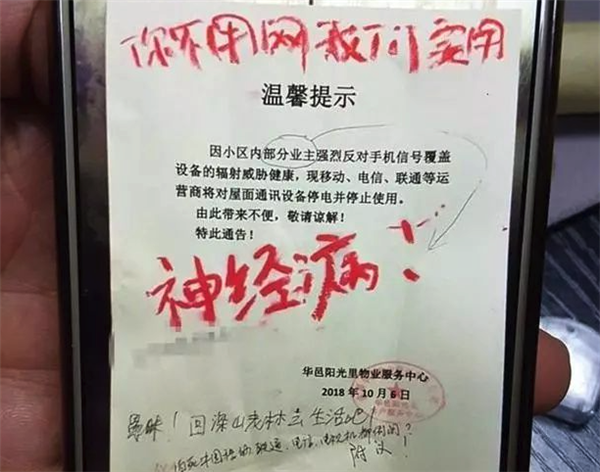 你不用网我们要用
温馨提示
因小区内部分业主强烈反对手机信号覆盖
设备的辐射威胁健康，现移动、电信、联通等运
营商将对屋面通讯设备停电并停止使用。
由此带来不便，敬请谅解！
特此通告！
神经病！
华邑阳光里物业服务中心
2018年10月6日
愚昧！回深山老林去生活吧！
附议！